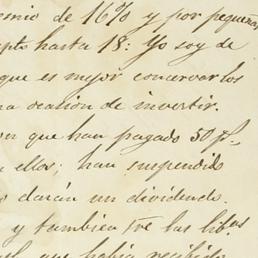 emio de 16% y por pequeñas
hasta 18: Yo soy de
que es mejor conservar los
na ocasion de invertir.
on que han pagado 50 p%
n ellos; han suspendido
s darán un dividendo.
y tambien las lib.as
que habia recibido